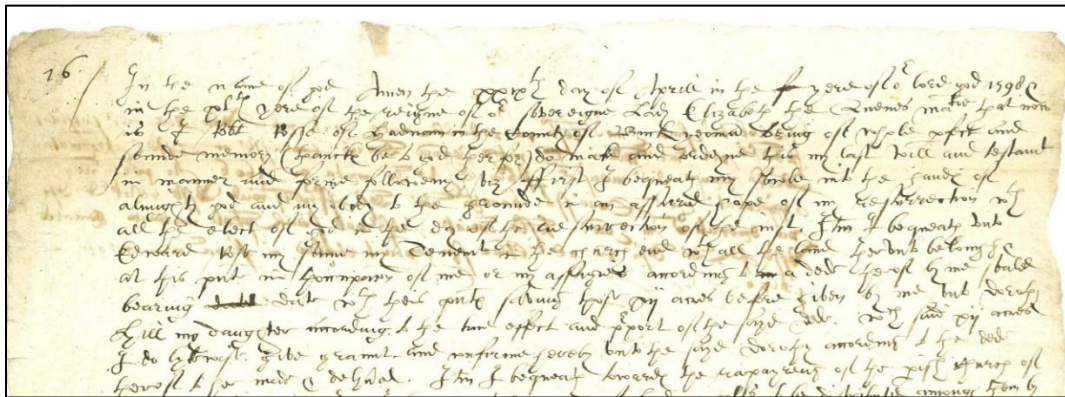 26
In the name of god Amen the xxixth day of Aprill in the yere of or lord god 1598
in the xlth yere of the reigne of or Sovereigne Lady Elizabeth the Quenes matie that now
is I Robt Rosse of Hadnam in the County of Buck yeoman being of whole pfect and
sounde memory (thanckes be to god therfor) do make and ordeyne this my last will and testamt
in manner and forme followeing viz ffirst I bequeath my soule into the handes of
almighty god and my body to the grounde in an assured hope of my resurrection wth
all the elect of god in the day of the resurrection of the iust Itm I bequeath unto
Edward Rosse my sonne my Tenemt in the church end wth all the land therunto belonging
at this psnt in thoccupacon of me or my assignes according to a dede therof by me sealed
bearing date wth theis psntes saving those xij acres before given by me unto Dorothy
Hill my daughter according to the true effect and pport of the sayd dede. wch said xij acres
I do lykewise give graunt and confirme hereby unto the sayd Dorothy according to the dede
therof to be made & delivered. Itm I bequeath towardes the repayring of the pish church of
to be distributed amongst them by